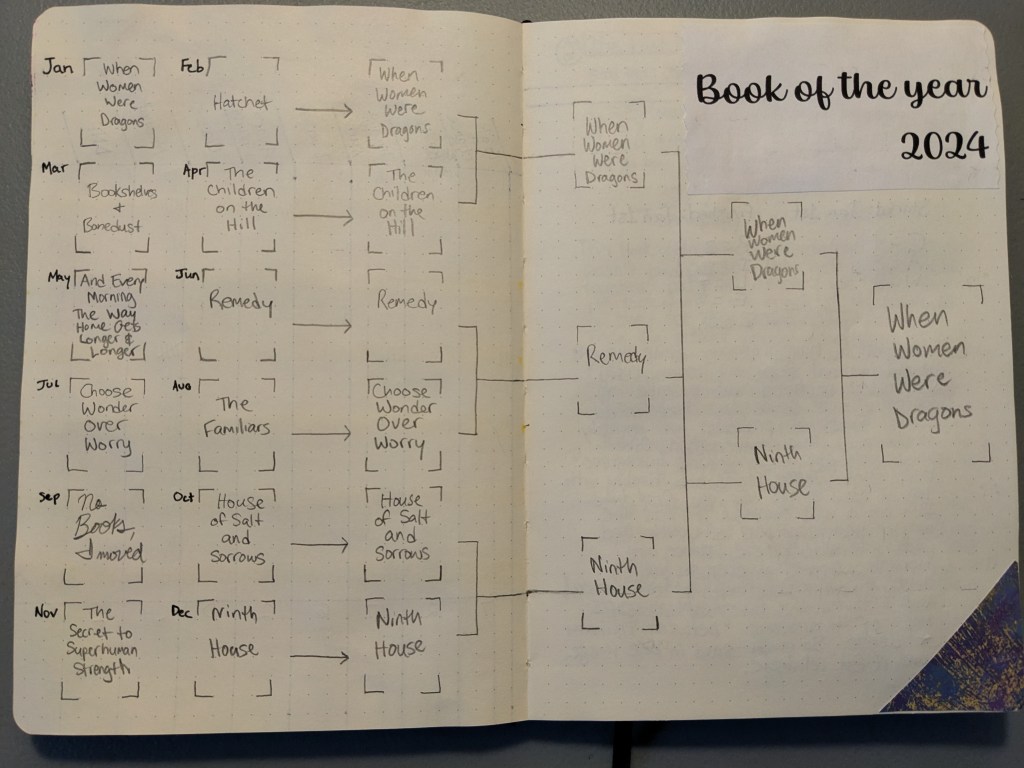 Book of the year
2024
Jan
When
Women
Were
Dragons
Feb
Hatchet
When
Women
Were
Dragons
Mar
Bookshelves
+
Bonedust
Apr
The
Children
on the
Hill
The
Children
on the
Hill
May
And Every
Morning
The Way
Home Gets
Longer &
Longer
Jun
Remedy
Remedy
Jul
Choose
Wonder
Over
Worry
Aug
The
Familiars
Choose
Wonder
Over
Worry
Sep
No
Books,
I moved
Oct
House
of Salt
and
Sorrows
House
of Salt
and
Sorrows
Nov
The
Secret to
Superhuman
Strength
Dec
Ninth
House
Ninth
House
When
Women
Were
Dragons
Remedy
Ninth
House
When
Women
Were
Dragons
Ninth
House
When
Women
Were
Dragons